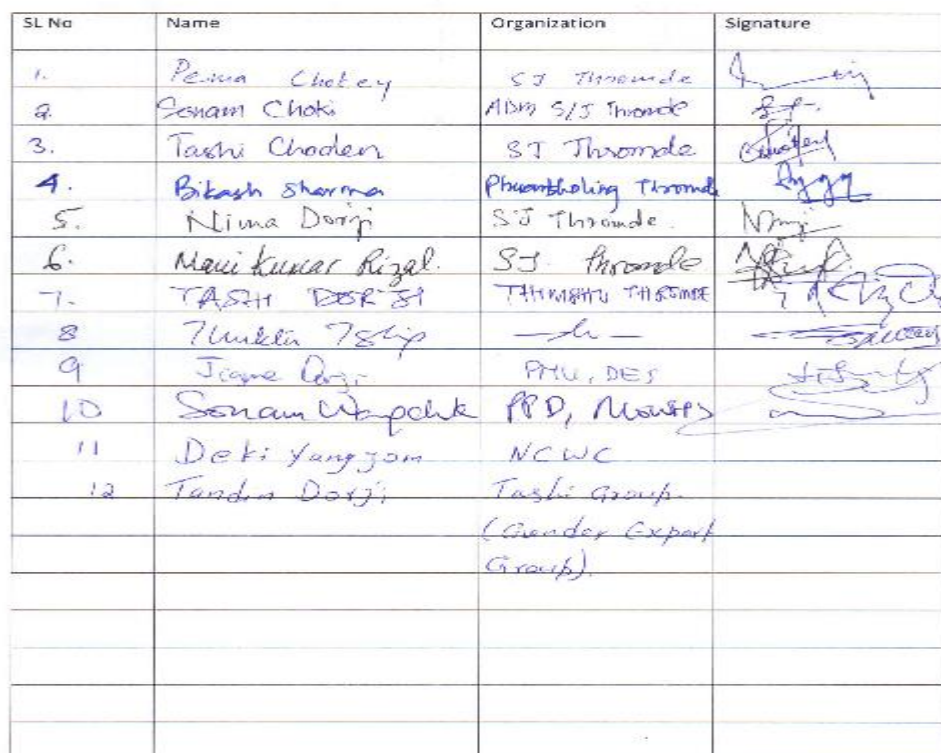 SL No Name Organization Signature
1. Pema Chokey SJ Thromde
2. Sonam Choki ADM S/J Thromde
3. Tashi Choden SJ Thromde
4. Bikash Sharma Phuentholing Thromde
5. Nima Dorji SJ Thromde.
6. Mani Kumar Rizal. SJ. Thromde
7. TASHI DORJI THIMPHU THROMDE
8
9 Jigme Dorji PMU, DES
10 Sonam Wangchuk PPD, MoWHS
11 Deki Yangzom NCWC
12 Tandin Dorji Tashi Group.
(Gender Expert
Group).